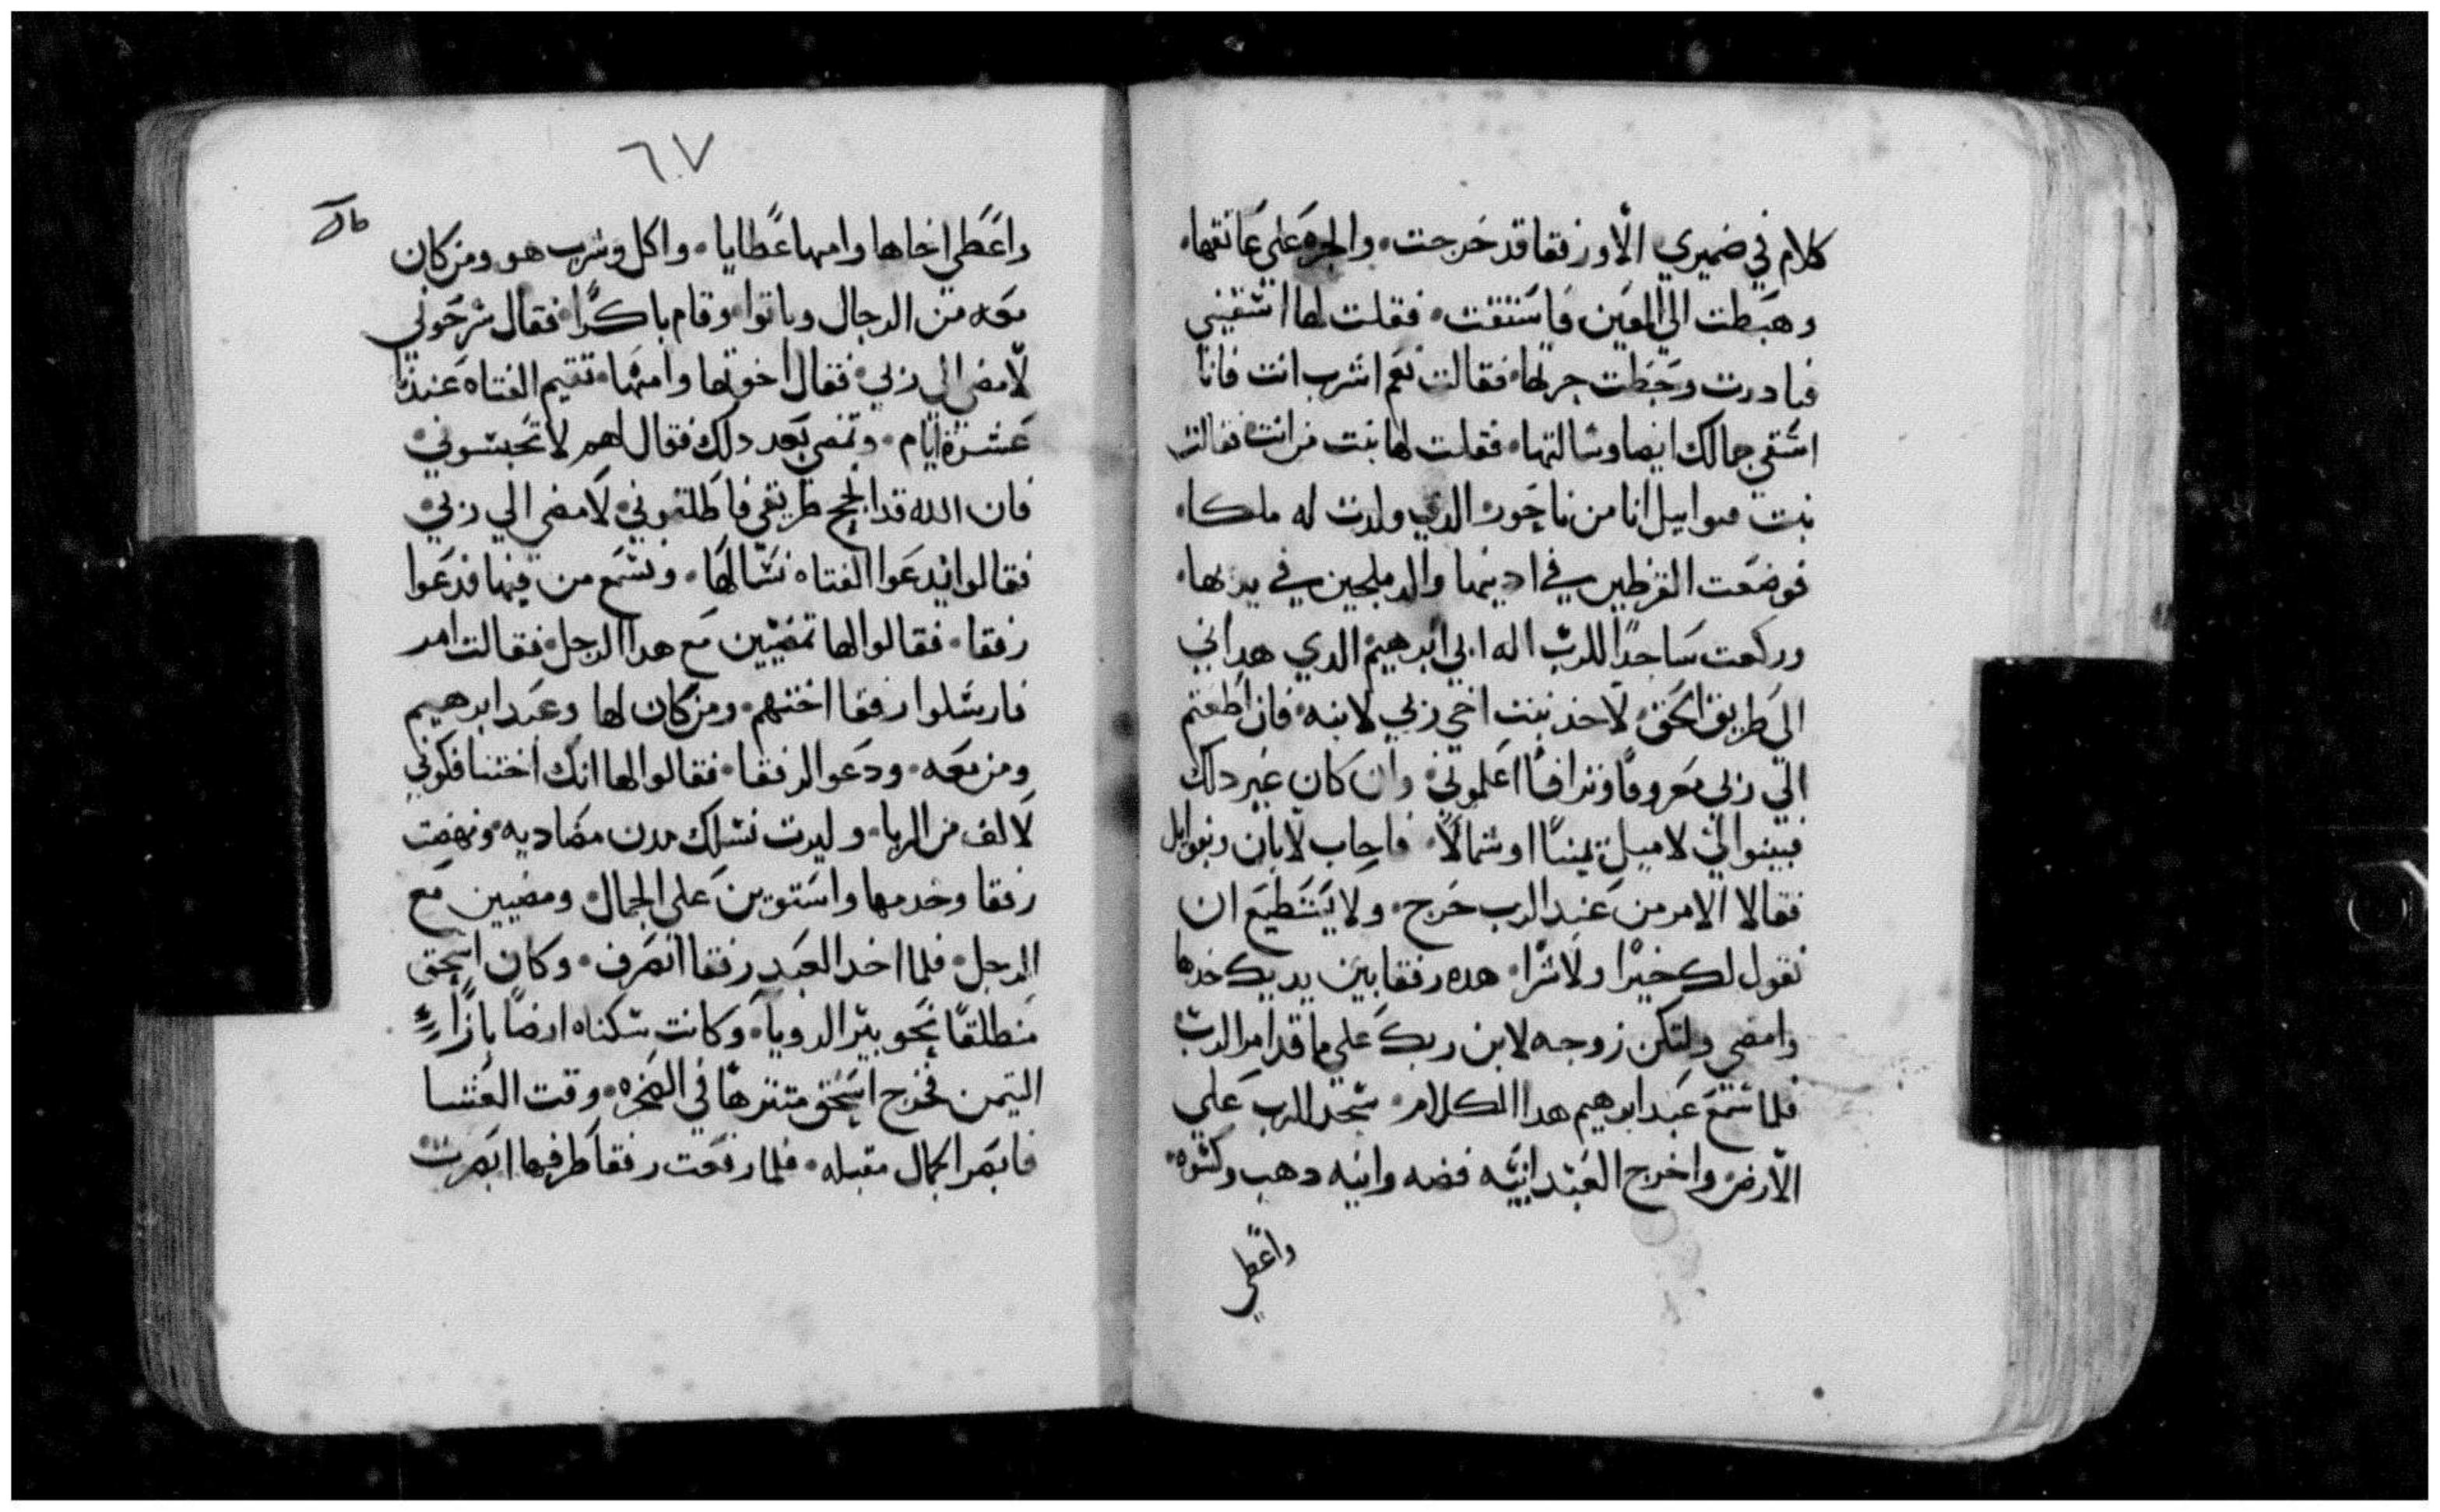 كلام في ضميري الّا ورفقا قد خرجت والجره على عاتقها
وهبطت الي العين فاستقت فقلت لها اسقيني
فبادرت وحطت جرتها فقالت نعم اشرب انت فانا
اسقي جمالك ايضا وسالتها فقلت لها بنت من انت فقالت
بنت متوابيل انا من ناحور الدي ولدت له ملكا
فوضعت القرطين في ادينها والدملجين في يديها
وركعت ساجدًا للرب اله ابي ابرهيم الدي هداني
الي طريق الحق لاخد بنت اخي ربي لابنه فان اطعتم
الي ربي معروفًا وترافًا اعلموني وان كان غير دلك
فبينوا لي لاميل يمينًا او شمالًا فاجاب لابان وبتوايل
فقالا الامر من عند الرب خرج ولا يستطيع ان
نقول لك خيرًا ولا شرا هده رفقا بين يديك خدها
وامضي ولتكن زوجه لابن ربك علي ما قد امر الرب
فلما سمع عبد ابرهيم هدا الكلام سجد للرب علي
الارض واخرج العبد انيه فضه وانيه دهب وكسوه
واعطي
٦٧
واعطي اخاها وامها عطايا واكل وشرب هو ومن كان
معه من الرجال وباتوا وقام باكرًا فقال سرحوني
لامضي الي ربي فقال اخوتها وامها تقيم الفتاه عندنا
عشرة ايام وتمضي بعد دلك فقال لهم لا تحبسوني
فان الله قد انجح طريقي فاطلقوني لامضي الي ربي
فقالوا ندعوا الفتاه نسالها ونسمع من فيها فدعوا
رفقا فقالوا لها تمضيين مع هدا الرجل فقالت امر
فارسلوا رفقا اختهم ومن كان لها وعبد ابرهيم
ومن معه ودعوا لرفقا فقالوا لها انك اختنا فكوني
لالف من الربا وليرت نسلك مدن مضاديه ونهضت
رفقا وخدمها واستوين علي الجمال ومضيين مع
الرجل فلما اخد العبد رفقا انصرف وكان اسحق
منطلقًا نحو بير الرويا وكانت سكناه ارضًا بازا
التيمن فخرج اسحق متنزهًا في الصخره وقت العشا
فابصر الجمال مقبله فلما رفعت رفقا طرفها ابصرت